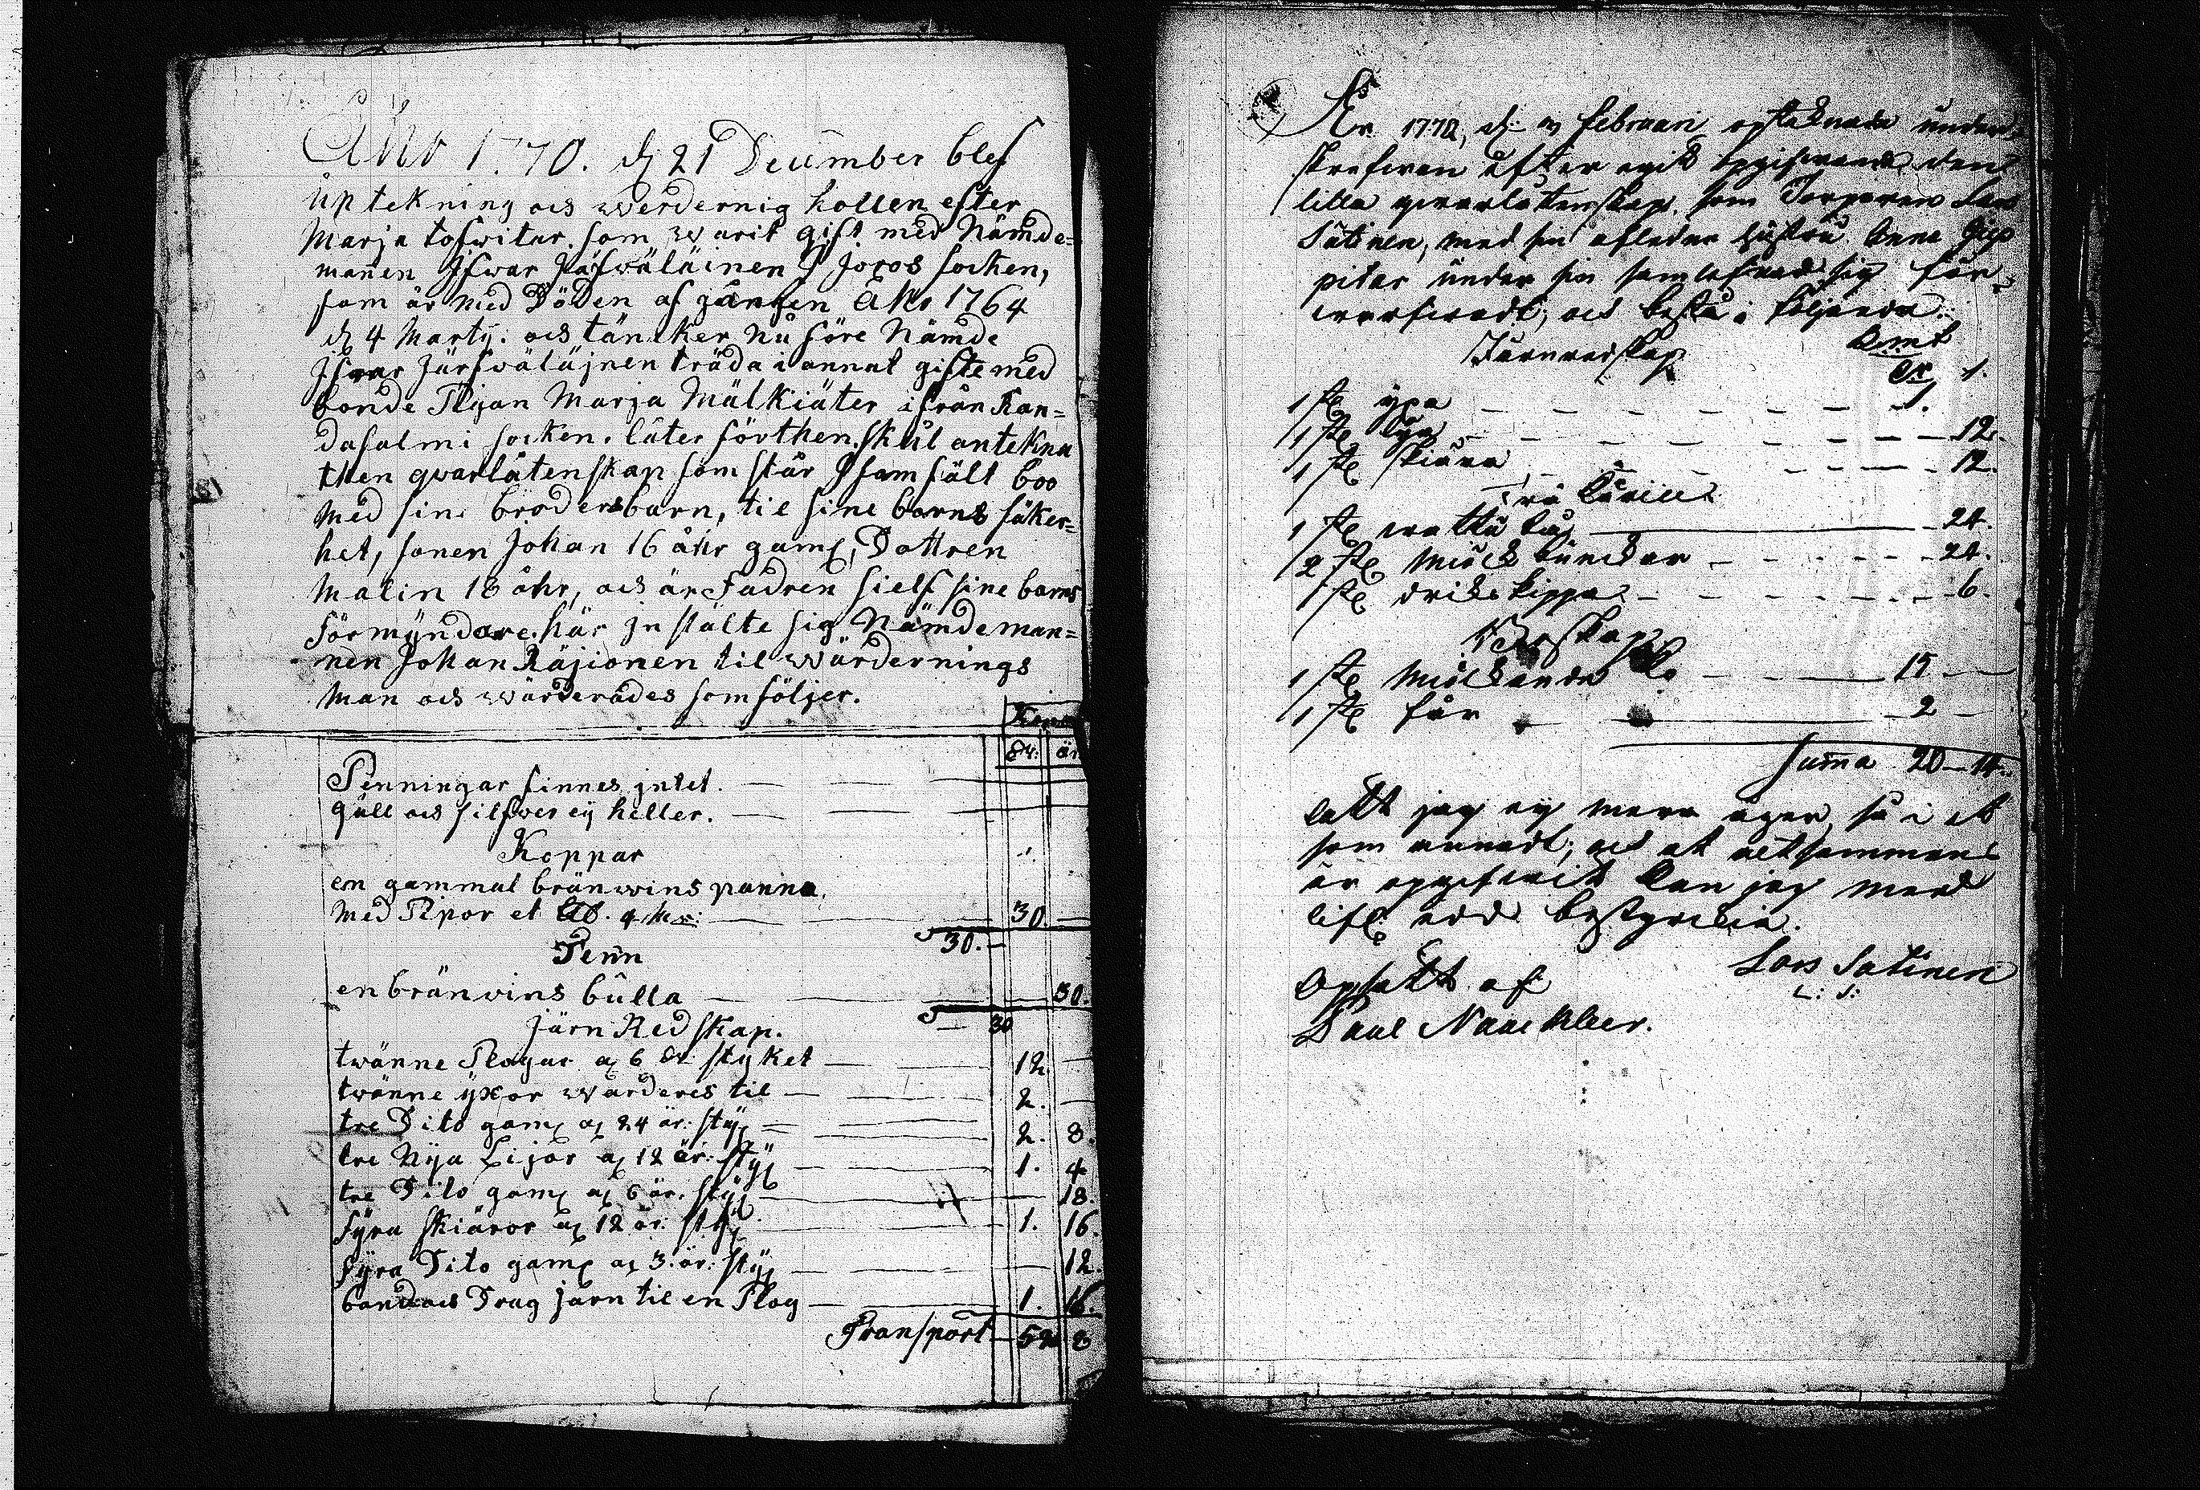 Åhr 1770. d 21 December blef
üptekning och werdernig hollen efter
Marja tofwitar. som warit gift med Nämde-
mannen Ifwar Järfwäläinen J Joxos socken,
som är med Döden af gången Åhr 1764
d 4 Martij: och täncker nu före Nämde
Ifwar Järfwäläjnen träda i annat gifte med
bonde Pigan Marja Mälkiäter ifrån Ran-
dasalmi socken. låter förthenskul antekna
then qwarlåtenskap som står J samfält boo
med sine bröders barn, til sine barns säker-
het, sonen Johan 16 åhr gaml, Dottren
Malin 18 åhr, och är Fadren sielf sine barns
förmyndare. här jnstälte sig Nämdeman-
nen Johan Räjionen til wärdernings
man och wärderades som följer.
Dr: ör
Penningar finnes jntet.
gull och silfwer ej heller.
Koppar
en gammal bränwins panna
med Pipor et 30.
30.
Tenn
en bränwins bulla 30.
30
Järn Redskap.
twänne Plogar a 6 dr styket 12
twänne yxor warderes til 2.
tre Dito gaml a 24 ör: styk 2. 8.
tre Nya Lijor a 12 ör: styk 1. 4
tre Dito gaml a 6 ör. styk 18.
fyra skiäror a 12 ör: styk 1. 16.
fyra Dito gaml a 3. ör: styk 12.
band och Drag jarn til en Plog 1. 16.
Transport 52 8
År 1770, d: Februari optecknade under-
skrefwen efter egit opgifwande den
lilla qwarlåtenskap, som Torparen Lars
Satinen, med sin afledne hustru Anna
pitar under sin samlefnad sig för-
wärfwadt, och bestå i följande.
Järnredskap
1.
1 st yxa 1.
1 st lya 12.
1 st skiära 12.
Trä Käriell
1 st wattu 24.
2 st miölck Künckor 24.
1 st dricks kippa 6.
Boskap
1 st miölckande Ko 15
1 st får 2
Summa 20 14.
att jag ej mera äger så i et
som annadt, och at altsammans
är opgifwit kan jag med
lifl. ed bestyrckia.
Lars Satinen
L: S:
Opsatt af
Paul Nauckleer.